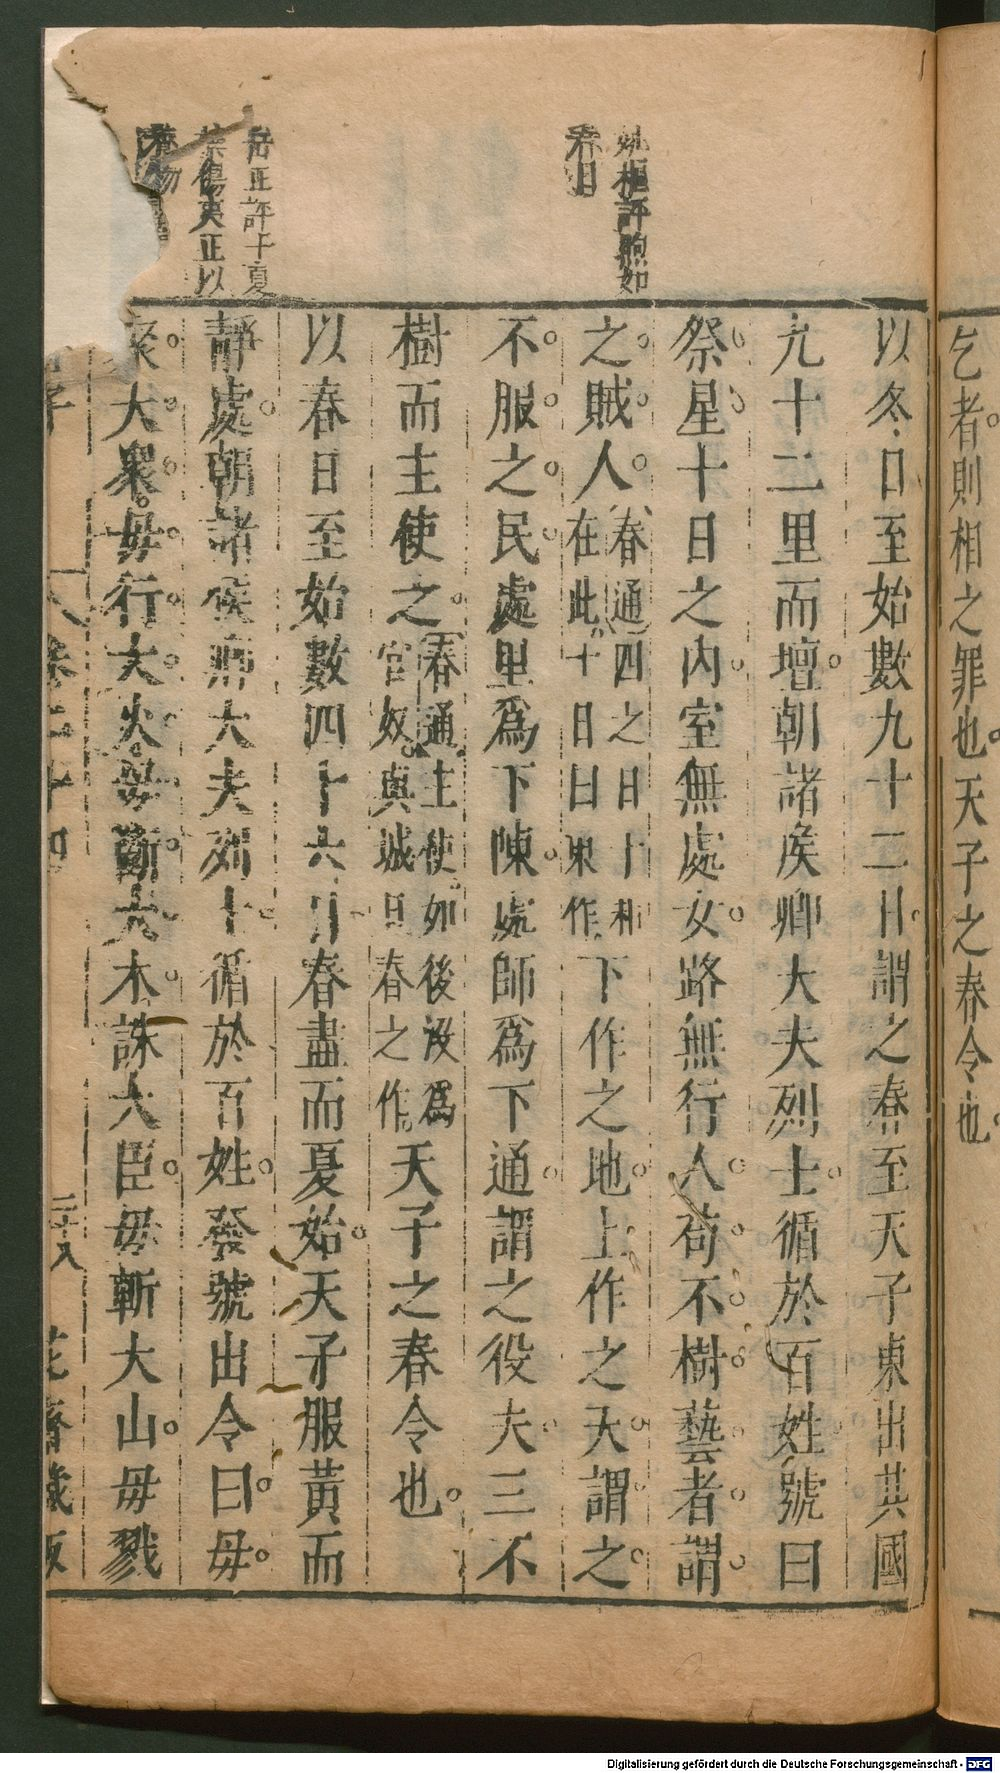 乞者則相之罪也天子之春令也
姚樞評煦如
春日
以冬日至始數九十二日謂之春至天子東出其國
九十二里而壇朝諸侯卿大夫烈士循於百姓號曰
祭星十日之內室無處女路無行人苟不樹藝者謂
之賊人
春通四之日十和
在此十日日東作
下作之地上作之天謂之
不服之民處里為下陳處師為下通謂之役夫三不
樹而主使之
春通主使如後沒為
官奴與城旦春之作
天子之春令也
岳正評于夏
禁傷夷正以
物
以春日至始數四十六日春盡而夏始天子服黃而
靜處朝諸侯卿大夫列士循於百姓發號出令曰毋
聚大眾毋行大火毋斷大木誅大臣毋斬大山毋戮
子
卷二十四
二十八
花齋藏板
Digitalisierung gefördert durch die Deutsche Forschungsgemeinschaft - DFG